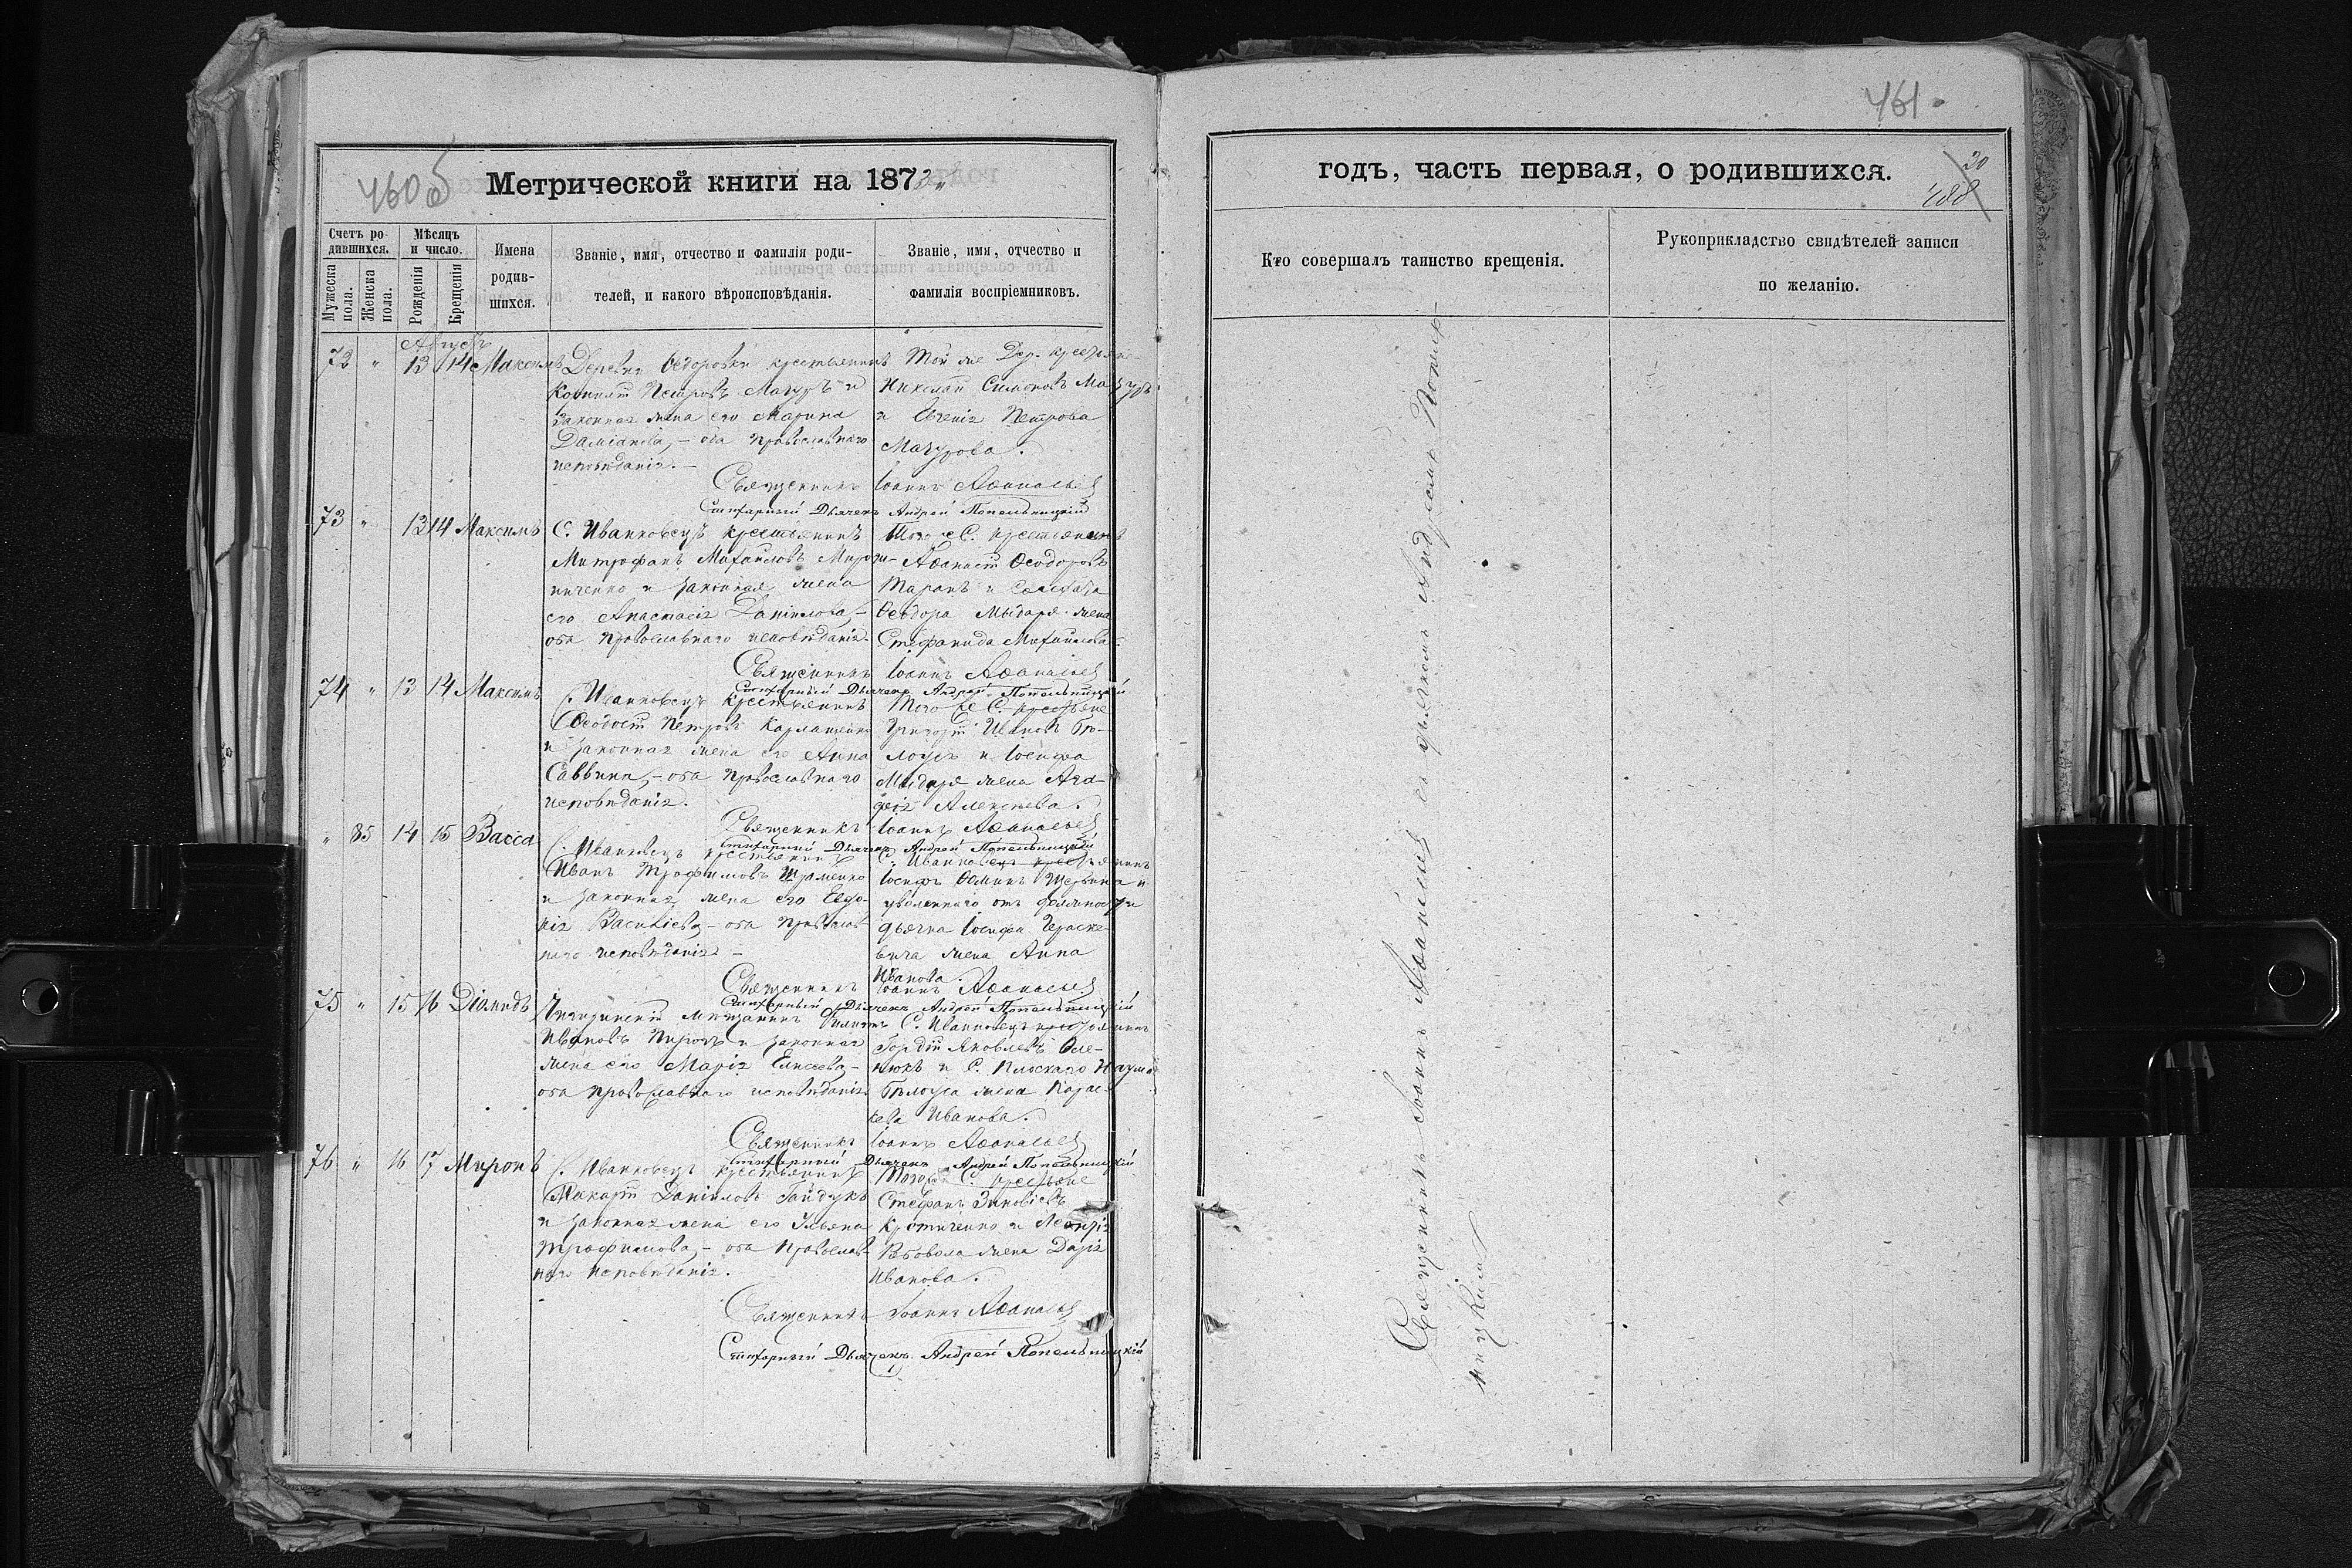 460 об
Метрической книги на 1873
Счетъ ро-
дившихся.
Мужеска пола.
Женска пола.
Мѣсяцъ
и число.
Рожденія
Крещенія
Имена
родив-
шихся.
Званіе, имя, отчество и фамилія роди-
телей, и какого вѣроисповѣданія.
Званіе, имя, отчество и
фамилія воспріемниковъ.
Августъ
72 " 13 14 Максимъ
Деревни Ѳедоровки крестьянинъ
Петровъ Мазуръ и
законная жена его Марина
Даміанова, – оба православнаго
исповѣданія. –
Той же Дер. крестьяне
Николай Симоновъ Мазуръ
и Евгенія Петрова
Мазурова.
Священникъ Іоаннъ Аѳанасьев
Стихарный Дьячекъ Андрей Попельницкій
73 " 13 14 Максимъ
С. Иванковецъ крестьянинъ
Митрофанъ Михайловъ Мирош-
ниченко и законная жена
его Анастасія Даніилова, –
оба православнаго исповѣданія.
Того же С. крестьянинъ
Ѳеодоровъ
Таранъ и солдата
Ѳеодора Мыдаря жена
Стефанида Михайлова.
Священникъ Іоаннъ Аѳанасьев
Стихарный Дьячекъ Андрей Попельницкій
74 " 13 14 Максимъ
С. Иванковецъ крестьянинъ
Ѳеодосій Петровъ Карлашенко
и законная жена его Анна
Саввина, – оба православнаго
исповѣданія.
Того же С. крестьяне
Григорій Ивановъ Бѣ-
лоусъ и Іосифа
Мыдаря жена Ага-
фія Алексѣева.
Священникъ Іоаннъ Аѳанасьев
Стихарный Дьячекъ Андрей Попельницкій
" 85 14 15 Васса
С. Иванковецъ крестьянинъ
Иванъ Трофимовъ
и законная жена его Евдо-
кія Василіева, – оба православ-
наго исповѣданія. –
С. Иванковецъ крестьянинъ
Іосифъ Ѳоминъ Щербина и
уволеннаго отъ должности
дьячка Іосифа Чераске-
вича жена Анна
Иванова.
Священникъ Іоаннъ Аѳанасьев
Стихарный Дьячекъ Андрей Попельницкій
75 " 15 16 Діомидъ
Чигиринскій мѣщанинъ Филиппъ
Ивановъ Пирогъ и законная
жена его Марія Елисеева, –
оба православнаго исповѣданія.
С. Иванковецъ крестьянинъ
Гордій Яковлевъ Оле-
нюкъ и С. Плоскаго Наума
Бѣлоуса жена Парас-
кева Иванова.
Священникъ Іоаннъ Аѳанасьев
Стихарный Дьячекъ Андрей Попельницкій
76 " 16 17 Миронъ
С. Иванковецъ крестьянинъ
Макарій Даніиловъ Гайдукъ
и законная жена его Ульяна
Трофимова, – оба православ-
наго исповѣданія.
Того же С. крестьяне
Стефанъ Зиновіевъ
и
жена Дарія
Иванова.
Священникъ Іоаннъ Аѳанасьев
Стихарный Дьячекъ Андрей Попельницкій
461.
годъ, часть первая, о родившихся.
20
488
Кто совершалъ таинство крещенія.
Рукоприкладство свидѣтелей записи
по желанію.
Священникъ Іоаннъ Аѳанасьев съ дьячкомъ Андреемъ Попель-
ницкимъ